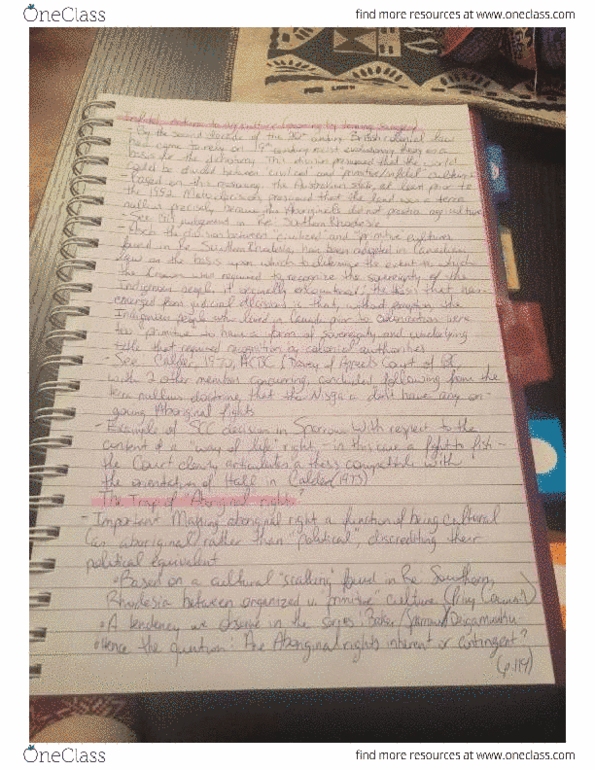 OneClass find more resources at www.oneclass.com
- By the second decade of the 20th century British colonial law
had come to rely on 19th century evolutionary theory as a
basis for the dichotomy. This division presumed that the world
could be divided between civilized and primitive/infidel cultures
- Based on this reasoning, the Australian state, at least prior to
the 1992 Mabo decision, presumed that the land was a terra
nullius precisely because the Aboriginals did not practice agriculture
- See 1919 judgement in Re: Southern Rhodesia
the division between "civilized" and "primitive" cultures
found in Re Southern Rhodesia, have been adopted in Canadian
law as the basis upon which to determine the extent to which
the Crown was required to recognize the sovereignty of the
Indigenous people it originally encountered, the thesis that has
emerged from judicial decisions is that, without exception, the
Indigenous people who lived in Canada prior to colonization were
too "primitive" to have a form of sovereignty and underlying
title that required recognition by colonial authorities
- See Calder, 1970, Court of BC
with 2 other members concurring, concluded, following from the
terra nullius doctrine, that the Nisga'a didn't have any on-
going Aboriginal rights
- Example of SCC decision in Sparrow With respect to the
content of a "way of life" right, - in this case a right to fish -
the Court clearly articulates a thesis compatible with
the orientation of Hall in Calder (1973)
The Trap of "Aboriginal rights"
- Important: Making aboriginal right a function of being cultural
(as aboriginal) rather than "political", discrediting their
political equivalent
• Based on a cultural "scaling" found in Re Southern
Rhodesia between organized v. "primitive" culture (Privy Council)
• A tendency we observe in the series: Baker/Sparrow/Delgamuukw
• Hence the question: Are Aboriginal rights inherent or contingent?
(p.119)
OneClass find more resources at www.oneclass.com